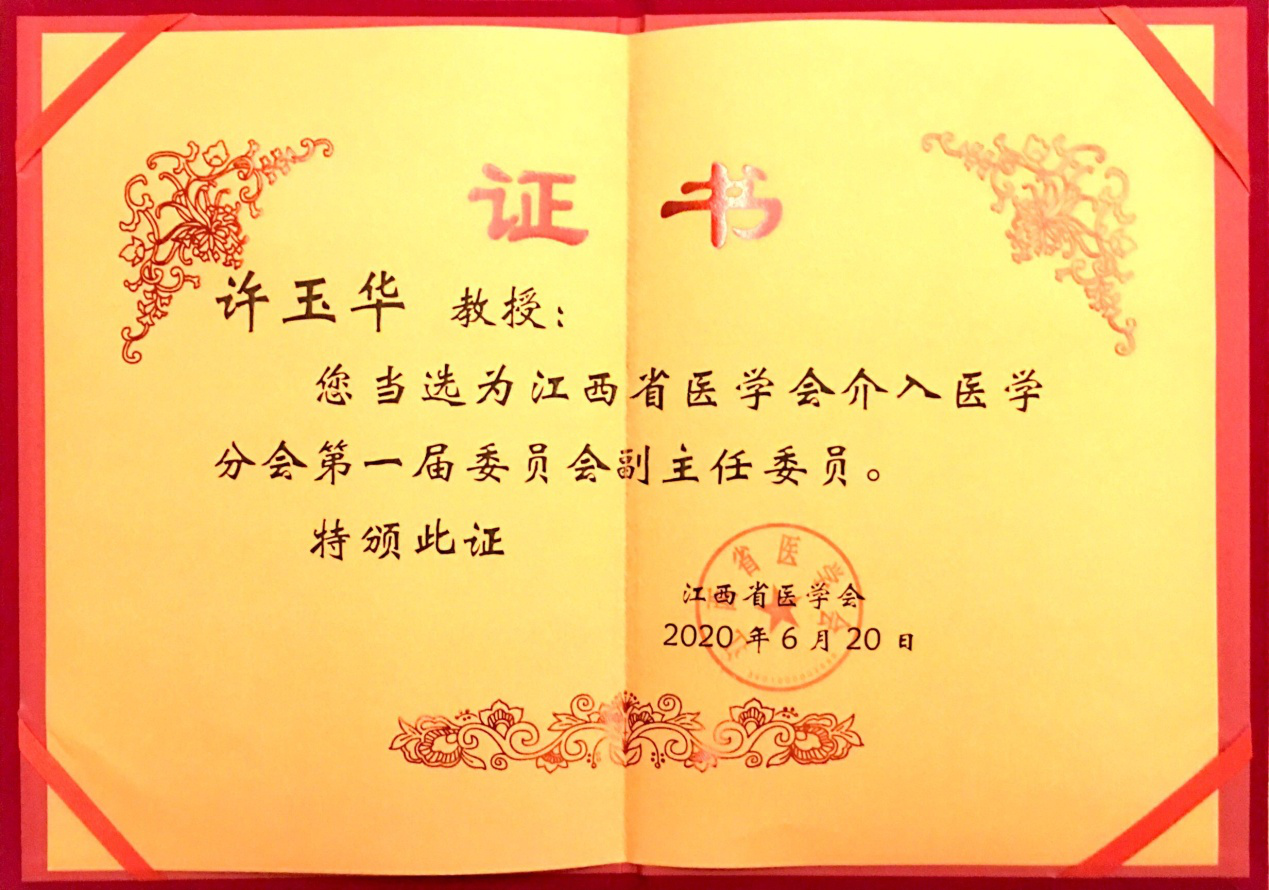 证书
许玉华 教授：
您当选为江西省医学会介入医学
分会第一届委员会副主任委员。
特颁此证
江西省医学会
2020 年 6 月 20 日
江西省医学会